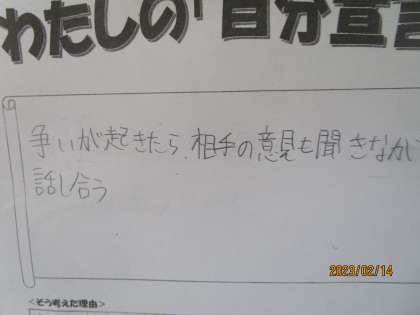 わたしの「自分宣言
争いが起きたら、相手の意見も聞きなが
話し合う
2023/02/14
<そう考えた理由>